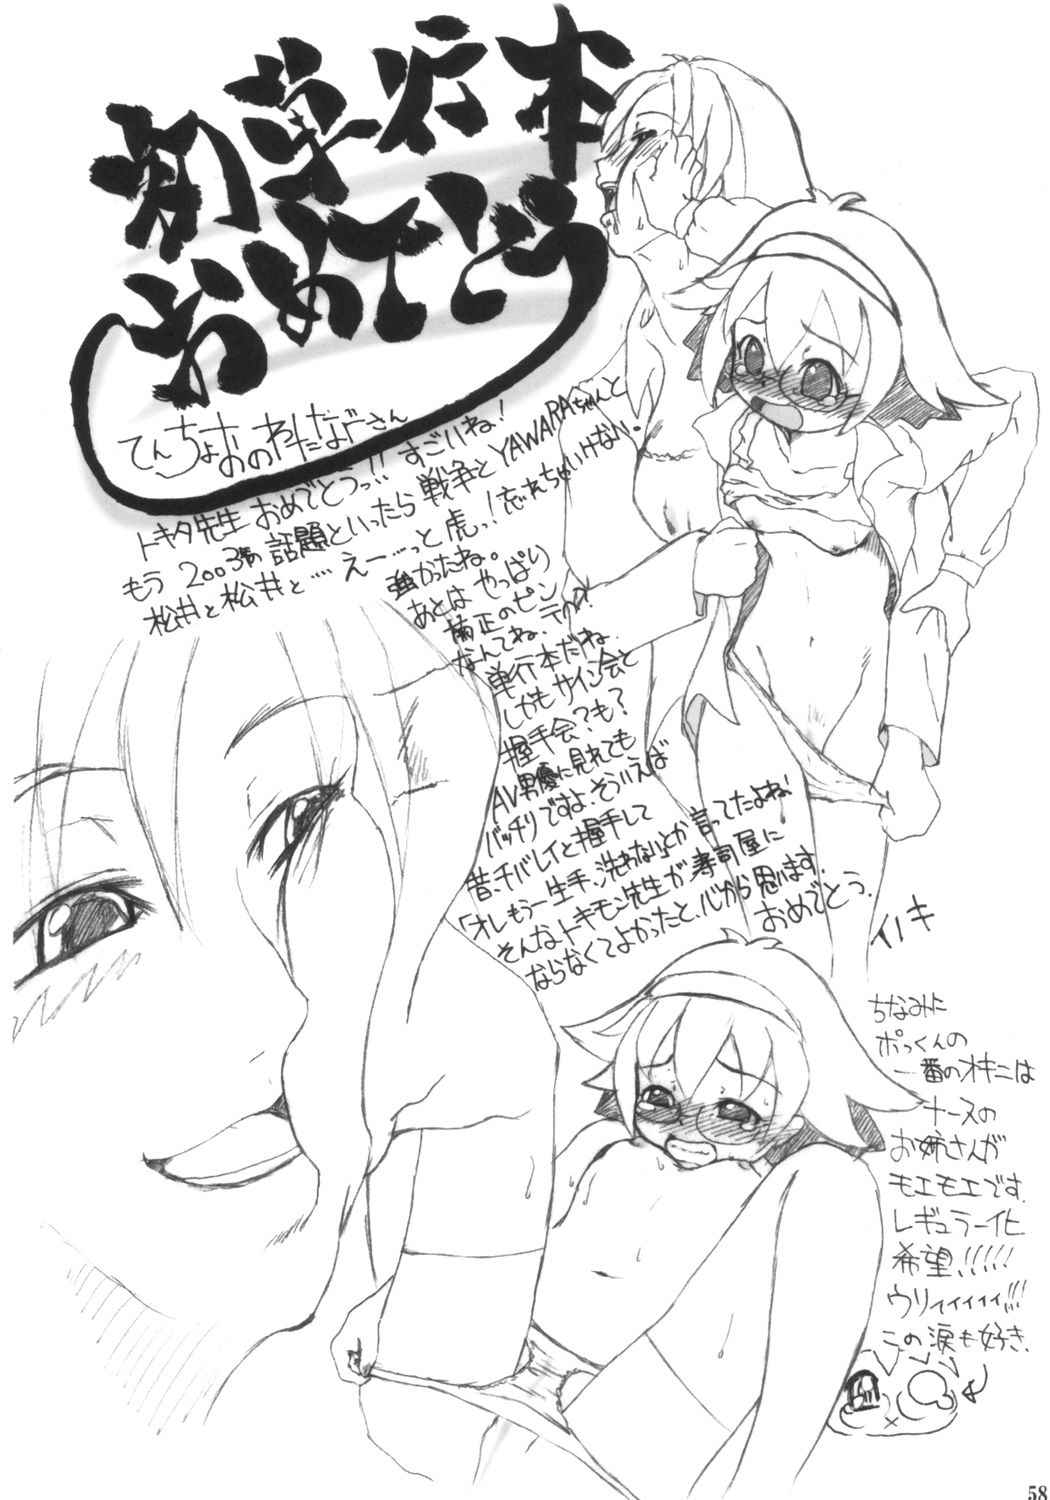 初単行本
おめでとう
てんちょおのわたなべさん
トキタ先生おめでとうっ!!すごいね!
もう2003年の話題といったら戦争とYAWARAちゃんと
松井と松井と…えーっと虎っ!忘れちゃいけない。
強かったね。
あとはやっぱり
補正のピン
なんてね、
単行本だね。
しかもサイン会と
握手会?も?
AV男優に見れても
バッチリですよ。そういえば
昔、チバレイと握手して
「オレもう一生手、洗わない」とか言ってたよね!
そんなトキモン先生が寿司屋に
ならなくてよかったと、心から思います。
おめでとう。
イノキ
ちなみに
ボっくんの
一番のオキニは
ナースの
お姉さんが
モエモエです。
レギュラー化
希望!!!!!
ウリィィィィィ!!!
この涙も好き。
58